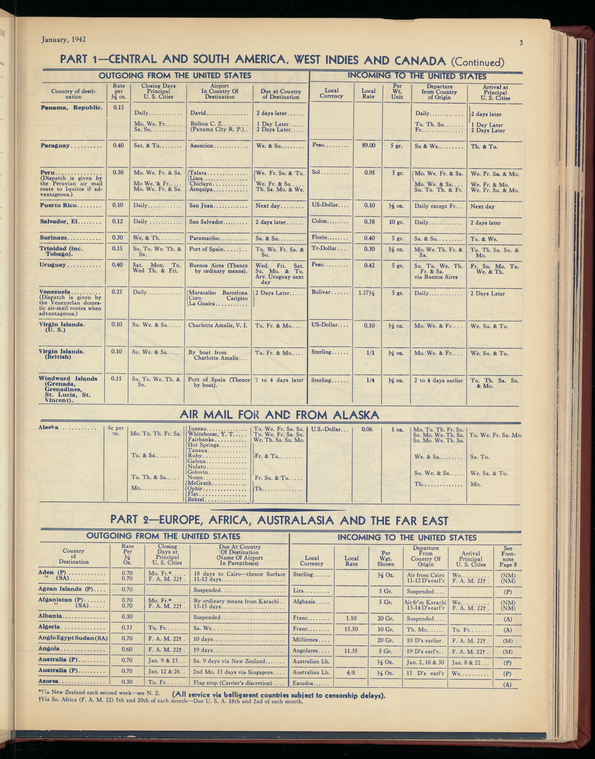 January, 1942
3
PART 1—CENTRAL AND SOUTH AMERICA, WEST INDIES AND CANADA (Continued)
OUTGOING FROM THE UNITED STATES INCOMING TO THE UNITED STATES
Country of desti-nation Rate per ½ oz. Closing Days Principal U. S. Cities Airport In Country Of Destination Due at Country of Destination Local Currency Local Rate Per Wt. Unit Departure from Country of Origin Arrival at Principal U. S. Cities
Panama, Republic. 0.15
Daily David 2 days later Daily 2 days later
Mo. We. Fr. Balboa C. Z. 1 Day Later Tu. Th. Su. 1 Day Later
Sa. Su. (Panama City R. P.). 2 Days Later Fr. 2 Days Later
Paraguay 0.40 Sat. & Tu. Asuncion We. & Su. Peso 89.00 5 gr. Su & We. Th. & Tu.
Peru 0.30 Mo. We. Fr. & Sa. Talara We. Fr. Su. & Tu. Sol 0.95 5 gr. Mo. We. Fr. & Sa. We. Fr. Sa. & Mo.
(Dispatch is given by Lima
the Peruvian air mail Mo We. & Fr. Chiclayo We. Fr. & Su. Mo. We. & Sa. We. Fr. & Mo.
route to Iquitos if ad- Mo. We. Fr. & Sa. Arequipa Th. Sa. Mo. & We. Su. Tu. Th. & Fr. We. Fr. Su. & Mo.
vantageous.)
Puerto Rico 0.10 Daily San Juan Next day US-Dollar 0.10 ½ oz. Daily except Fr. Next Day
Salvador, El 0.12 Daily San Salvador 2 days later Colon 0.58 10 gr. Daily 2 days later
Surinam 0.30 We. & Th. Paramaribo Sa. & Su. Florin 0.40 5 gr. Sa. & Su. Tu. & We.
Trinidad (inc. 0.15 Su. Tu. We. Th. & Port of Spain Tu. We. Fr. Sa. & Tr-Dollar 0.30 ½ oz. Mo. We. Th. Fr. & Tu. Th. Sa. Su. &
Tobago). Sa. Su. Sa. Mo.
Uruguay 0.40 Sat. Mon. Tu. Buenos Aires (Thence Wed. Fri. Sat. Peso 0.42 5 gr. Su. Tu. We. Th. Fr. Su. Mo. Tu.
Wed Th. & Fri. by ordinary means). Su. Mo. & Tu. Fr. & Sa. We. & Th.
Arv. Uruguay next via Buenos Aires
day
Venezuela 0.25 Daily Maracaibo Barcelona 2 Days Later Bolivar 1.27½ 5 gr. Daily 2 Days Later
(Dispatch is given by Coro Caripito
the Venezuelan domes- La Guaira
tic air-mail routes when
advantageous.)
Virgin Islands. 0.10 Su. We. & Sa. Charlotte Amalie, V. I. Tu. Fr. & Mo. US-Dollar 0.10 ½ oz. Mo. We. & Fr. We. Su. & Tu.
(U. S.)
Virgin Islands. 0.10 Su. We. & Sa. By boat from Tu. Fr. & Mo. Sterling 1/2 ½ oz. Mo. We. & Fr. We. Su. & Tu.
(British) Charlotte Amalie
Windward Islands 0.15 Su. Tu. We. Th. & Port of Spain (Thence 2 to 4 days later Sterling 1/4 ½ oz. 2 to 4 days earlier Tu. Th. Sa. Su.
(Grenada, Sa. by boat). & Mo.
Grenadines,
St. Lucia, St.
Vincent).
AIR MAIL FOR AND FROM ALASKA
Alaska 6c per Juneau Tu. We. Fr. Sa. Su. U.S.-Dollar 0.06 1 oz. Mo. Tu. Th. Fr. Su.
oz. Mo. Tu. Th. Fr. Sa. Whitehorse, Y. T. Tu. We. Fr. Sa. Su. Su. Mo. We. Th. Sa. Tu. We. Fr. Sa. Mo.
Fairbanks We. Th. Sa. Su. Mo. Su. Mo. We. Th. Sa.
Hot Springs
Tanana
Tu. & Sa. Ruby Fr. & Tu. We. & Sa. Sa. Tu.
Galena
Nulato
Golovin Su. We. & Sa. We. Sa. & Tu.
Tu. Th. & Sa. Nome Fr. Su. & Tu.
McGrath Th. Mo.
Mo. Ophir Th.
Flat
Bethel
PART 2—EUROPE, AFRICA, AUSTRALASIA AND THE FAR EAST
OUTGOING FROM THE UNITED STATES INCOMING TO THE UNITED STATES
Country of Destination Rate Per ½ Oz. Closing Days at Principal U. S. Cities Due At Country Of Destination (Name Of Airport In Parenthesis) Local Currency Local Rate Per Wgt. Shown Departure From Country Of Origin Arrival Principal U. S. Cities See Foot-note Page 8
Aden (P) 0.70 Mo. Fr.* 18 days to Cairo—thence Surface Sterling ½ Oz. Air from Cairo We. (NM)
" (SA) 0.70 F. A. M. 22† 11-12 days 11-12 D's earl'r F. A. M. 22† (NM)
Agean Islands (P) 0.70 Suspended Lira 5 Gr. Suspended (P)
Afganistan (P) 0.70 Mo. Fr.* By ordinary means from Karachi Afghania 5 Gr. Air fr'm Karachi We. (NM)
" (SA) 0.70 F. A. M. 22† 13-15 days 13-14 D's earl'r F. A. M. 22† (NM)
Albania 0.30 Suspended Franc 1.10 20 Gr. Suspended (A)
Algeria 0.35 Tu. Fr. Sa. We. Franc 15.50 10 Gr. Th. Mo. Tu. Fr. (A)
Anglo Egypt Sudan (SA) 0.70 F. A. M. 22† 10 days Milliemes 20 Gr. 10 D's earlier F. A. M. 22† (M)
Angola 0.60 F. A. M. 22† 19 days Angolares 11.35 5 Gr. 19 D's earl'r F. A. M. 22† (M)
Australia (P) 0.70 Jan. 9 & 23 Sa. 9 days via New Zealand Australian Lb. ½ Oz. Jan. 2, 16 & 30 Jan. 8 & 22 (P)
Australia (P) 0.70 Jan. 12 & 26 2nd Mo. 15 days via Singapore Australian Lb. 4/8 ½ Oz. 15 D's earl'r We. (P)
Azores 0.30 Tu. Fr. Flag stop (Carrier's discretion) Escudos (A)
*Via New Zealand each second week—see N. Z. (All service via belligerent countries subject to censorship delays).
†Via So. Africa (F. A. M. 22) 5th and 20th of each month—Due U. S. A. 18th and 2nd of each month.